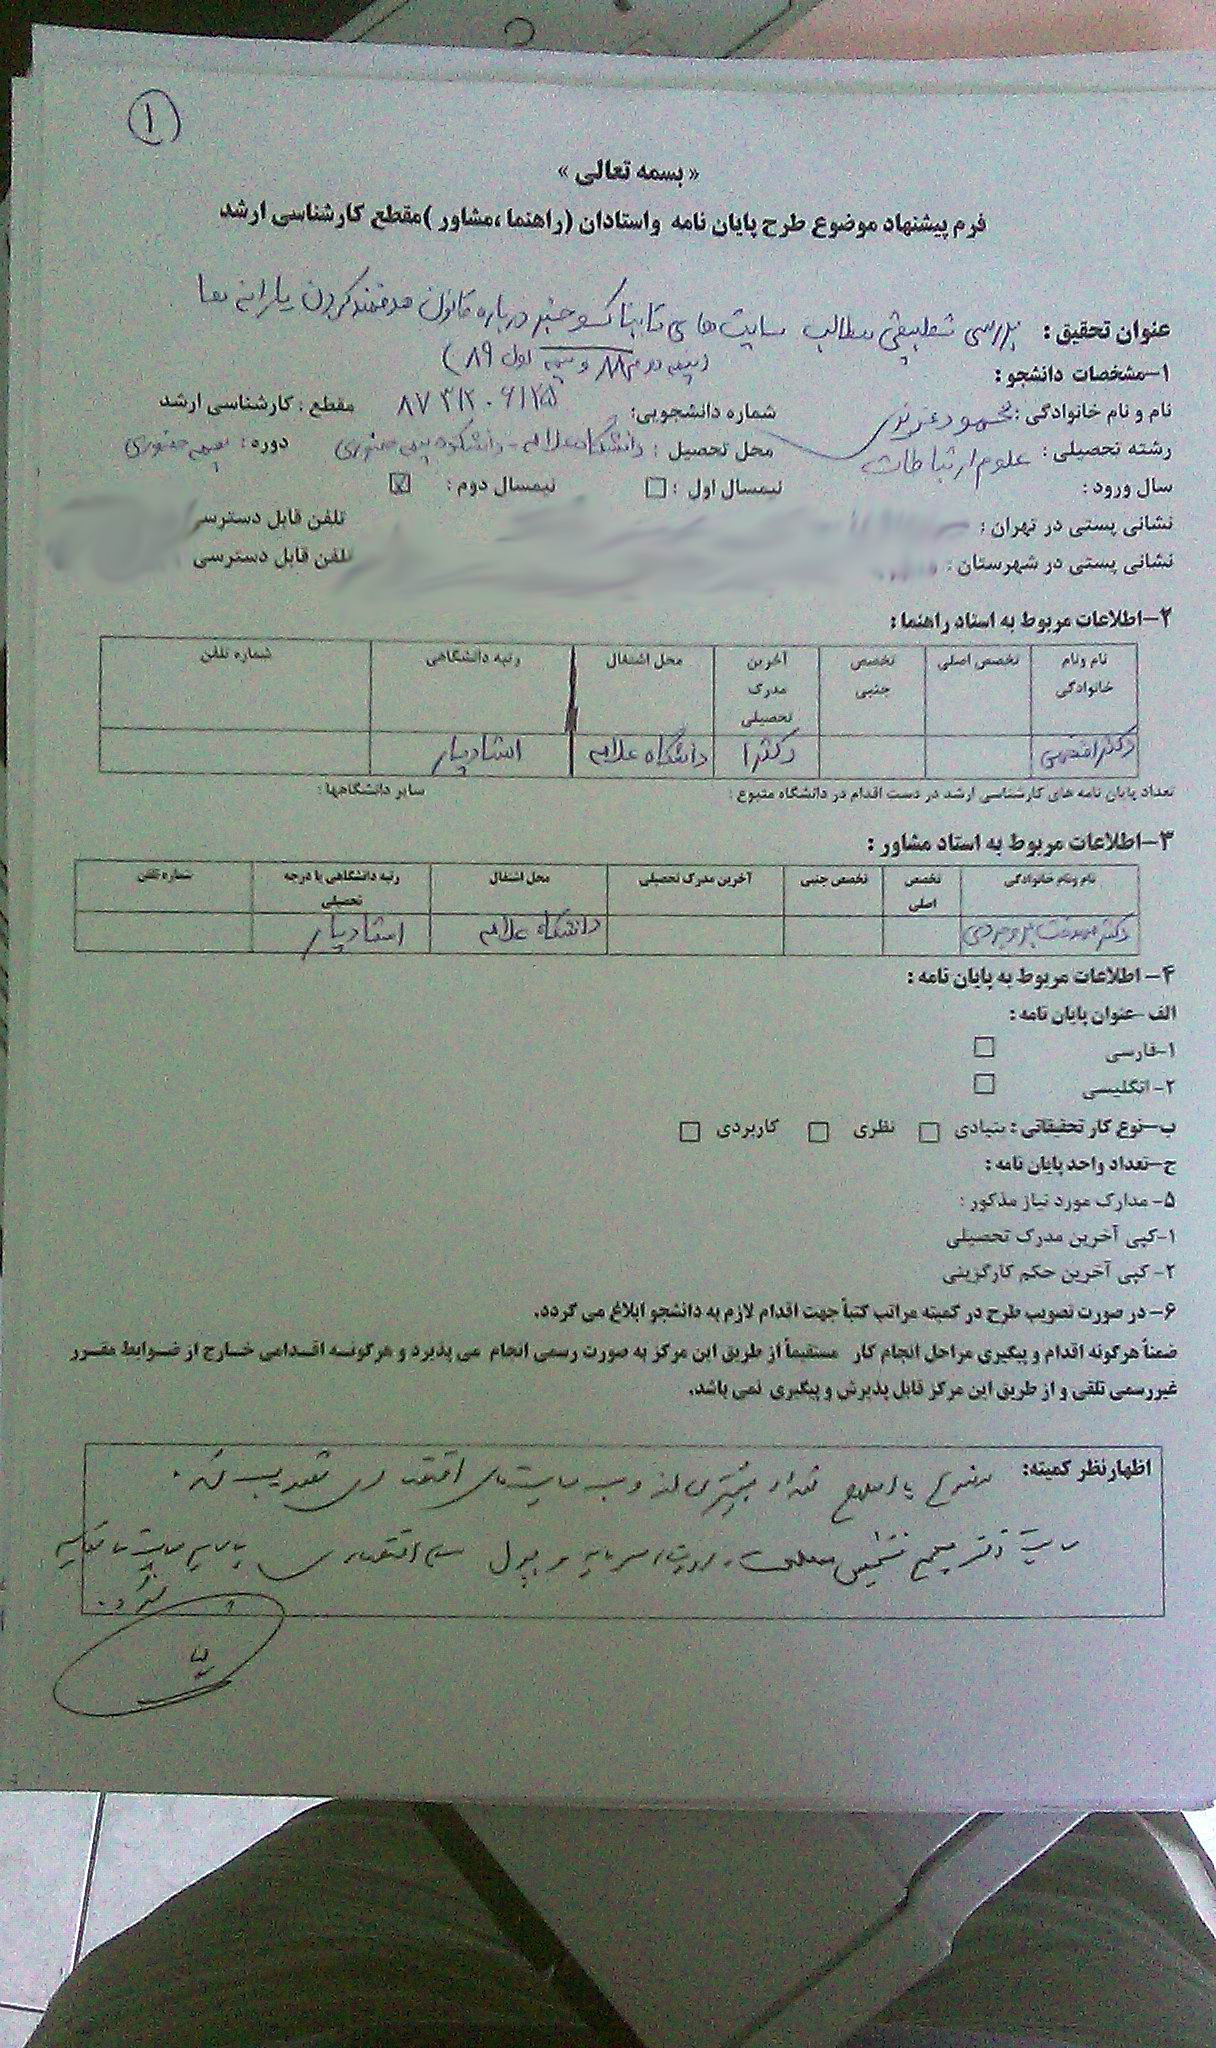 ۱
« بسمه تعالی »
فرم پیشنهاد موضوع طرح پایان نامه واستادان (راهنما ،مشاور )مقطع کارشناسی ارشد
عنوان تحقیق : بررسی تطبیقی مطالب سایت های تابناک و خبر درباره قانون هدفمند کردن یارانه ها
(نیمه دوم ۸۸ و نیمه اول ۸۹)
۱-مشخصات دانشجو :
نام و نام خانوادگی : محمود عزیزی شماره دانشجویی: مقطع : کارشناسی ارشد
رشته تحصیلی : علوم ارتباطات محل تحصیل : دانشگاه علامه - دانشکده نیمه حضوری دوره : نیمه حضوری
سال ورود : نیمسال اول : نیمسال دوم :
نشانی پستی در تهران : تلفن قابل دسترسی
نشانی پستی در شهرستان : تلفن قابل دسترسی
۲-اطلاعات مربوط به استاد راهنما :
نام ونام خانوادگی تخصص اصلی تخصص جنبی آخرین مدرک تحصیلی محل اشتغال رتبه دانشگاهی شماره تلفن
دکتر دکترا دانشگاه علامه استادیار
تعداد پایان نامه های کارشناسی ارشد در دست اقدام در دانشگاه متبوع : سایر دانشگاهها :
۳-اطلاعات مربوط به استاد مشاور :
نام ونام خانوادگی تخصص اصلی تخصص جنبی آخرین مدرک تحصیلی محل اشتغال رتبه دانشگاهی یا درجه تحصیلی شماره تلفن
دکتر بروجردی دانشگاه علامه استادیار
۴- اطلاعات مربوط به پایان نامه :
الف -عنوان پایان نامه :
۱-فارسی
۲- انگلیسی
ب-نوع کار تحقیقاتی : بنیادی نظری کاربردی
ج-تعداد واحد پایان نامه :
۵- مدارک مورد نیاز مذکور :
۱-کپی آخرین مدرک تحصیلی
۲- کپی آخرین حکم کارگزینی
۶- در صورت تصویب طرح در کمیته مراتب کتباً جهت اقدام لازم به دانشجو ابلاغ می گردد.
ضمناً هرگونه اقدام و پیگیری مراحل انجام کار مستقیماً از طریق این مرکز به صورت رسمی انجام می پذیرد و هرگونه اقدامی خارج از ضوابط مقرر
غیررسمی تلقی و از طریق این مرکز قابل پذیرش و پیگیری نمی باشد.
اظهارنظر کمیته: تعداد بیشتری از وب سایت‌های اقتصادی تصویب شد.
سایت مجمع تشخیص مصلحت سرمایه و پول